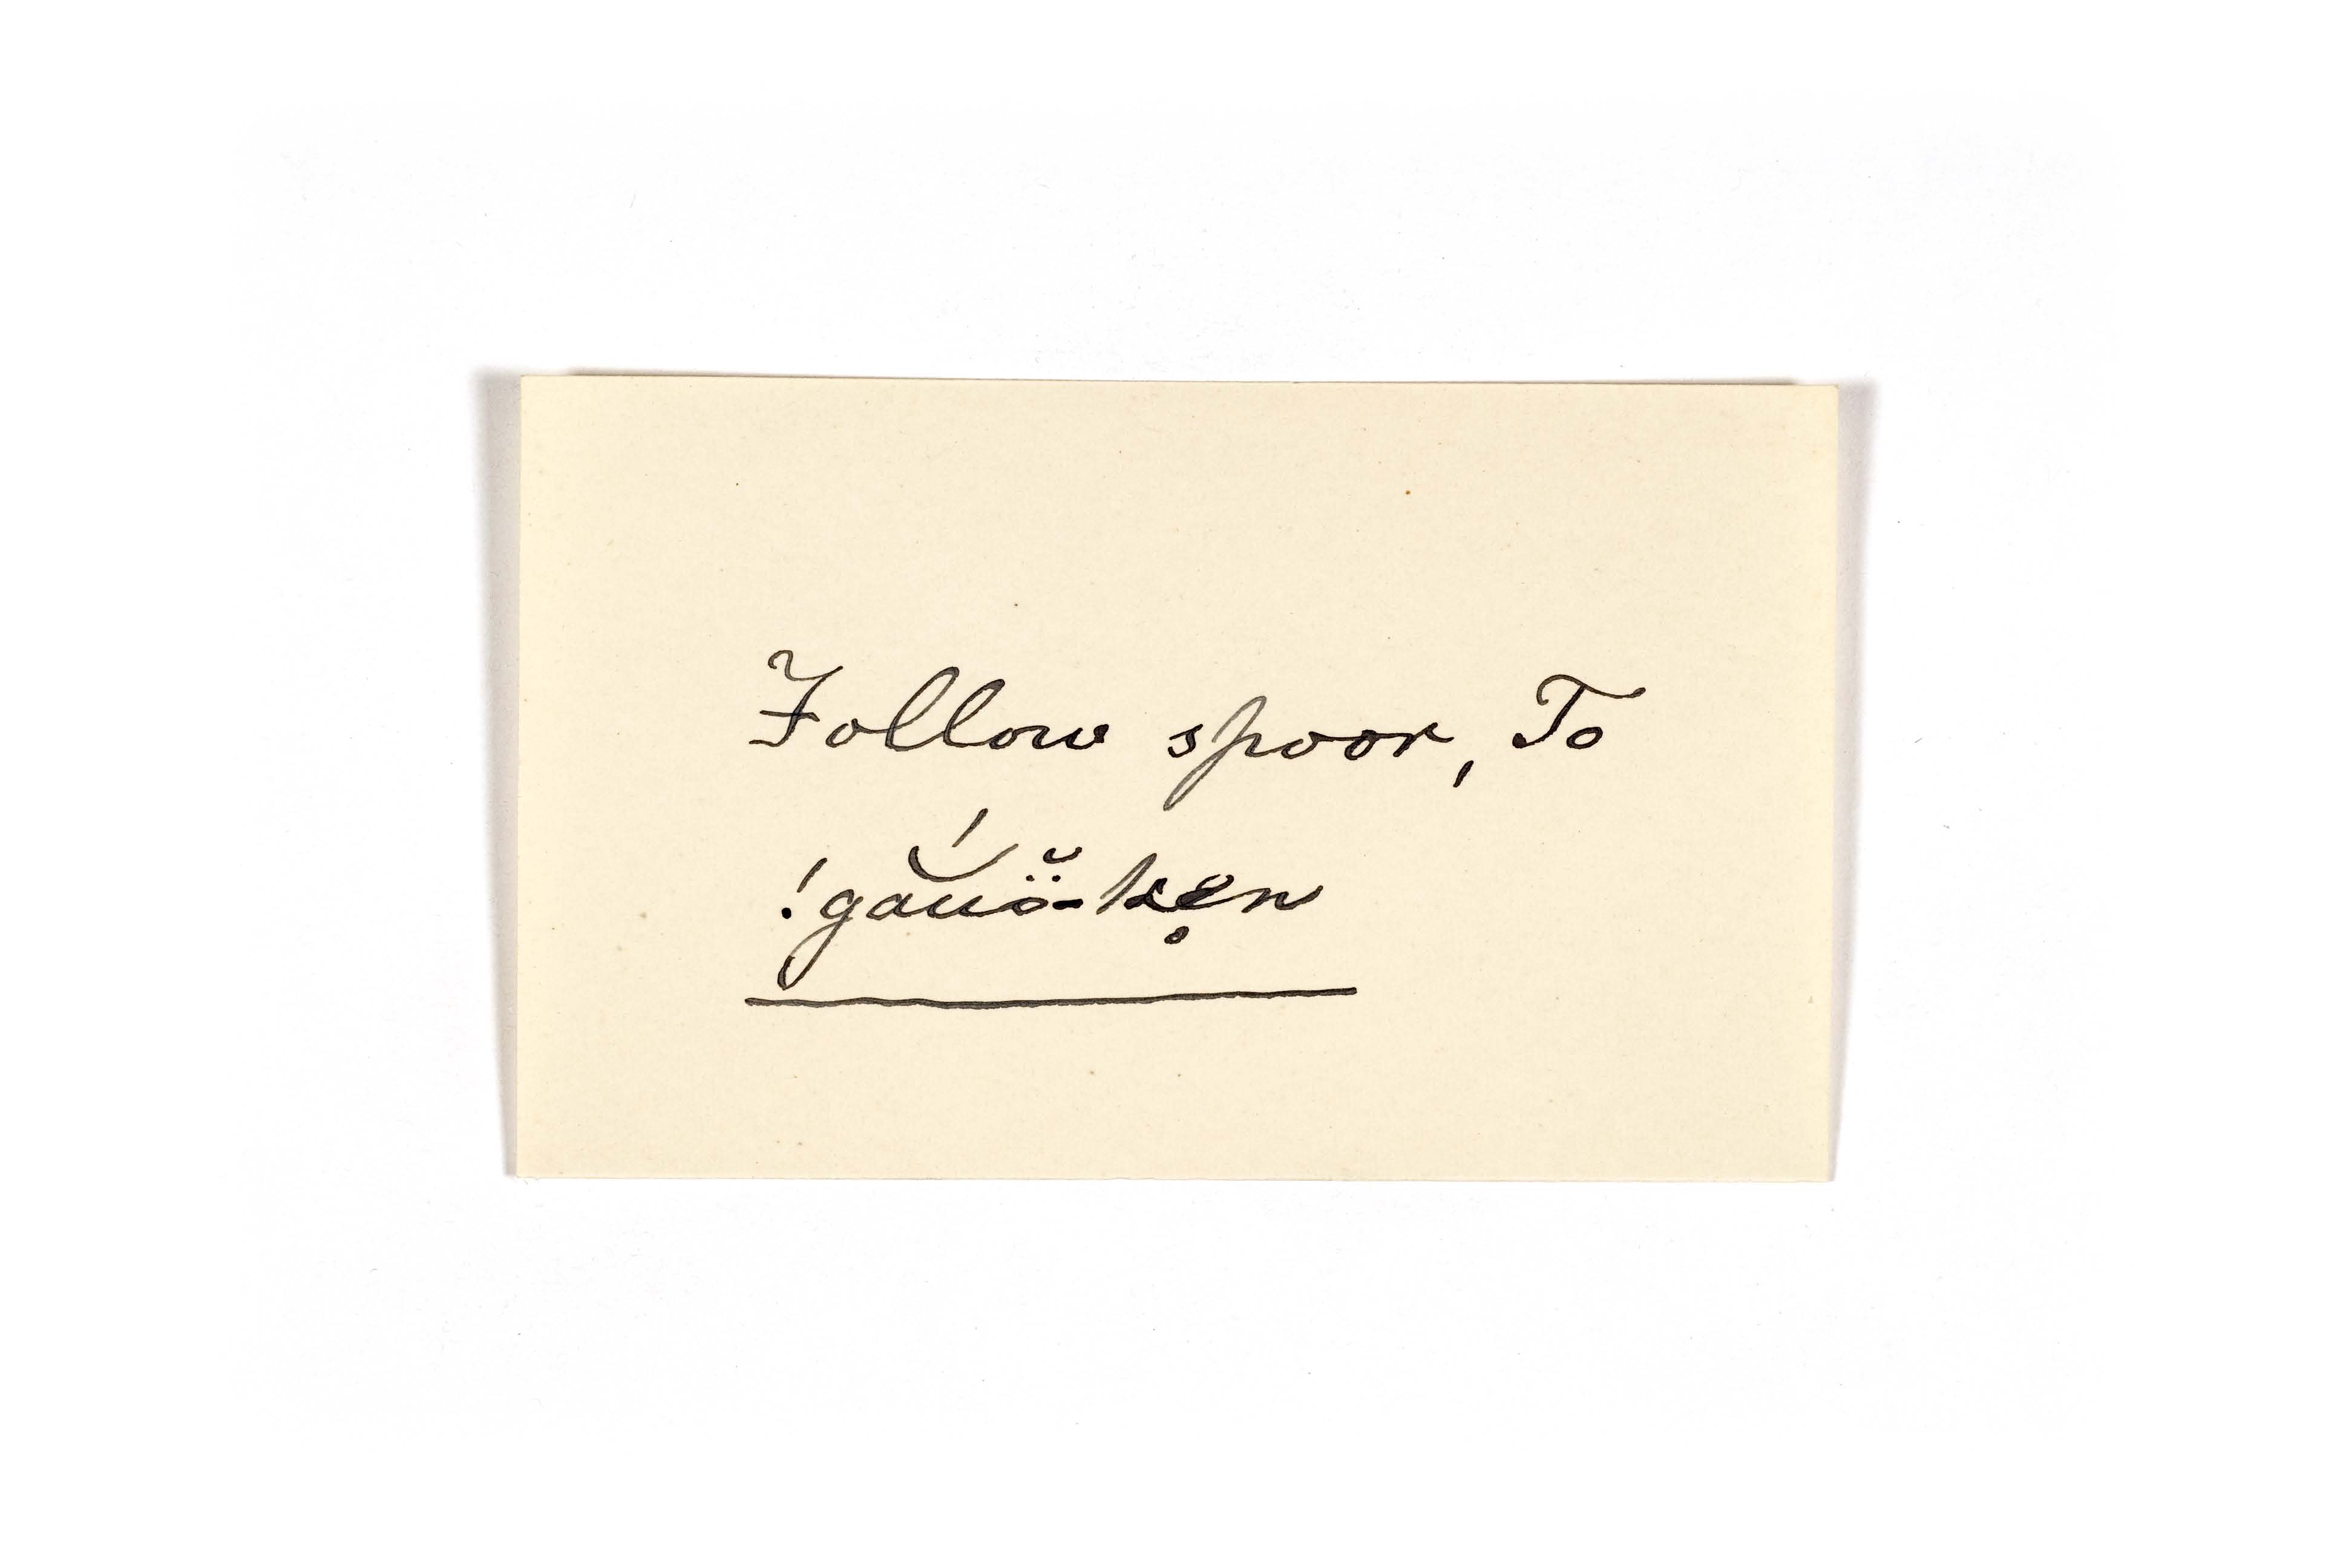 Follow spoor, To
!gắuö̆-ken̥